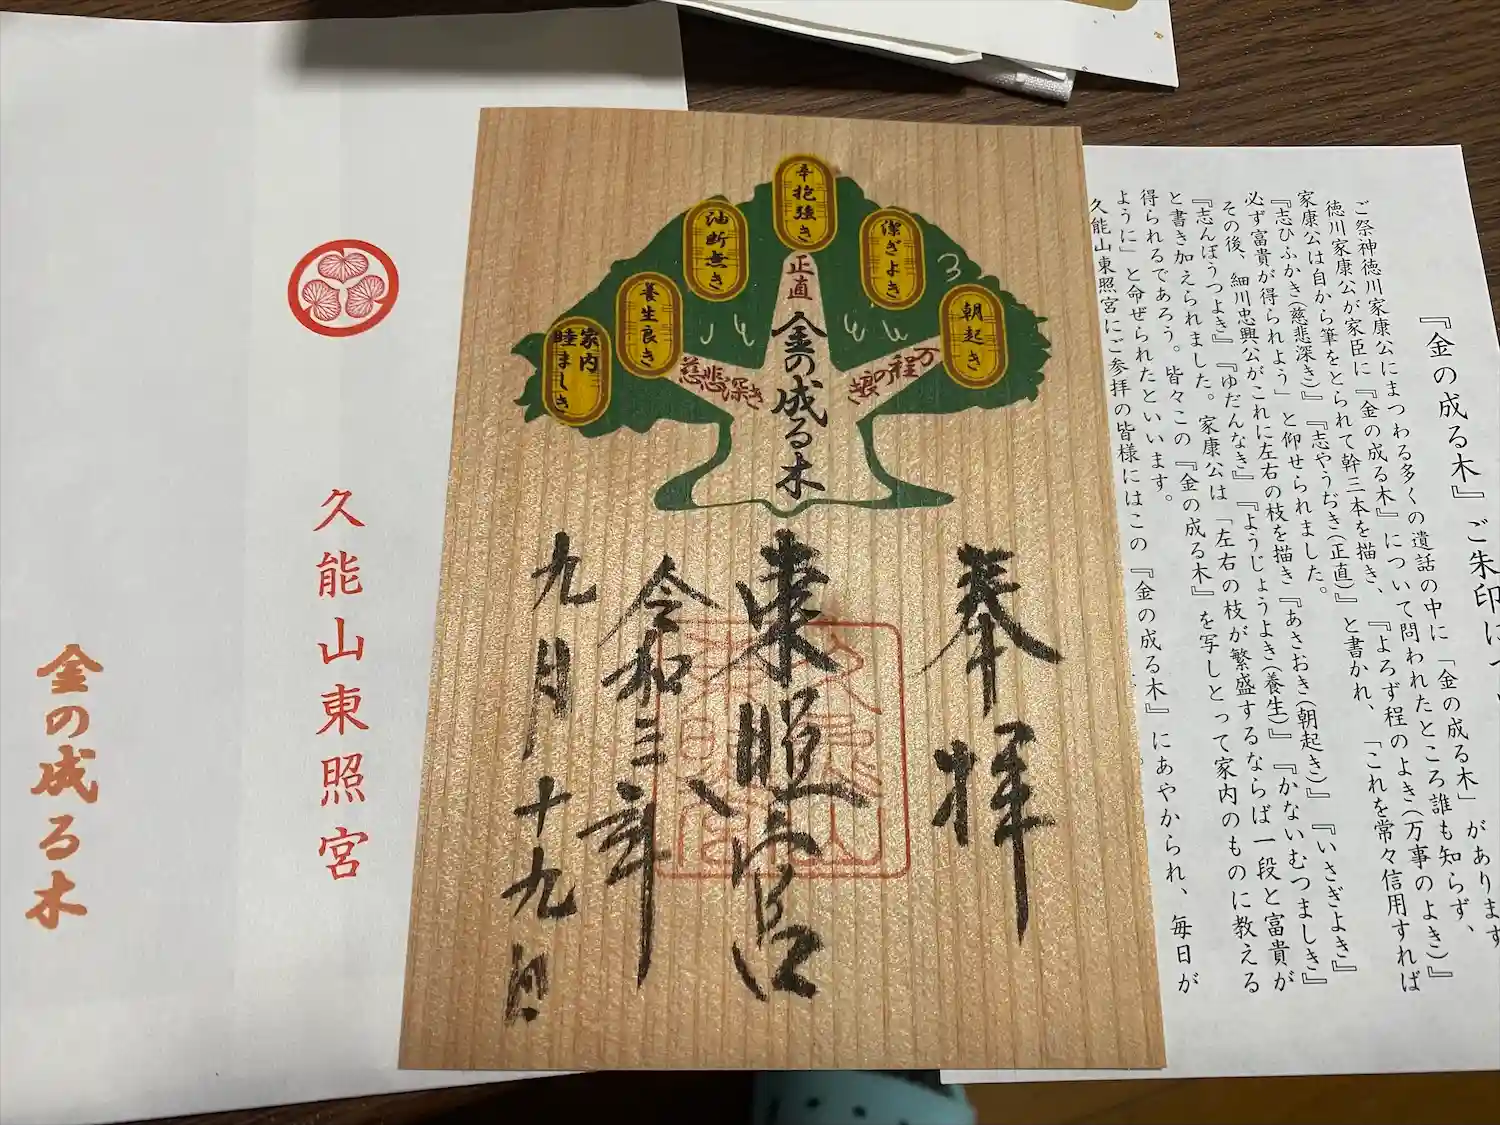 久能山東照宮
金の成る木
辛抱強き
油断無き
潔ぎよき
養生良き
朝起き
家内
睦ましき
正直
慈悲深き
万
程の
金の成る木
奉拝
東照宮
令和三年
九月十九日
『金の成る木』ご朱印に
ご祭神徳川家康公にまつわる多くの遺話の中に「金の成る木」があります
徳川家康公が家臣に『金の成る木』について問われたところ誰も知らず、
家康公は自から筆をとられて幹三本を描き、『よろず程のよき(万事のよき)』
『志ひふかき(慈悲深き)』『志やうぢき(正直)』と書かれ、「これを常々信用すれば
必ず富貴が得られよう」と仰せられました。
その後、細川忠興公がこれに左右の枝を描き『あさおき(朝起き)』『いさぎよき』
『志んぼうつよき』『ゆだんなき』『ようじょうよき(養生)』『かないむつましき』
と書き加えられました。家康公は「左右の枝が繁盛するならば一段と富貴が
得られるであろう。皆々この『金の成る木』を写しとって家内のものに教える
ように」と命ぜられたといいます。
久能山東照宮にご参拝の皆様にはこの『金の成る木』にあやかられ、毎日が